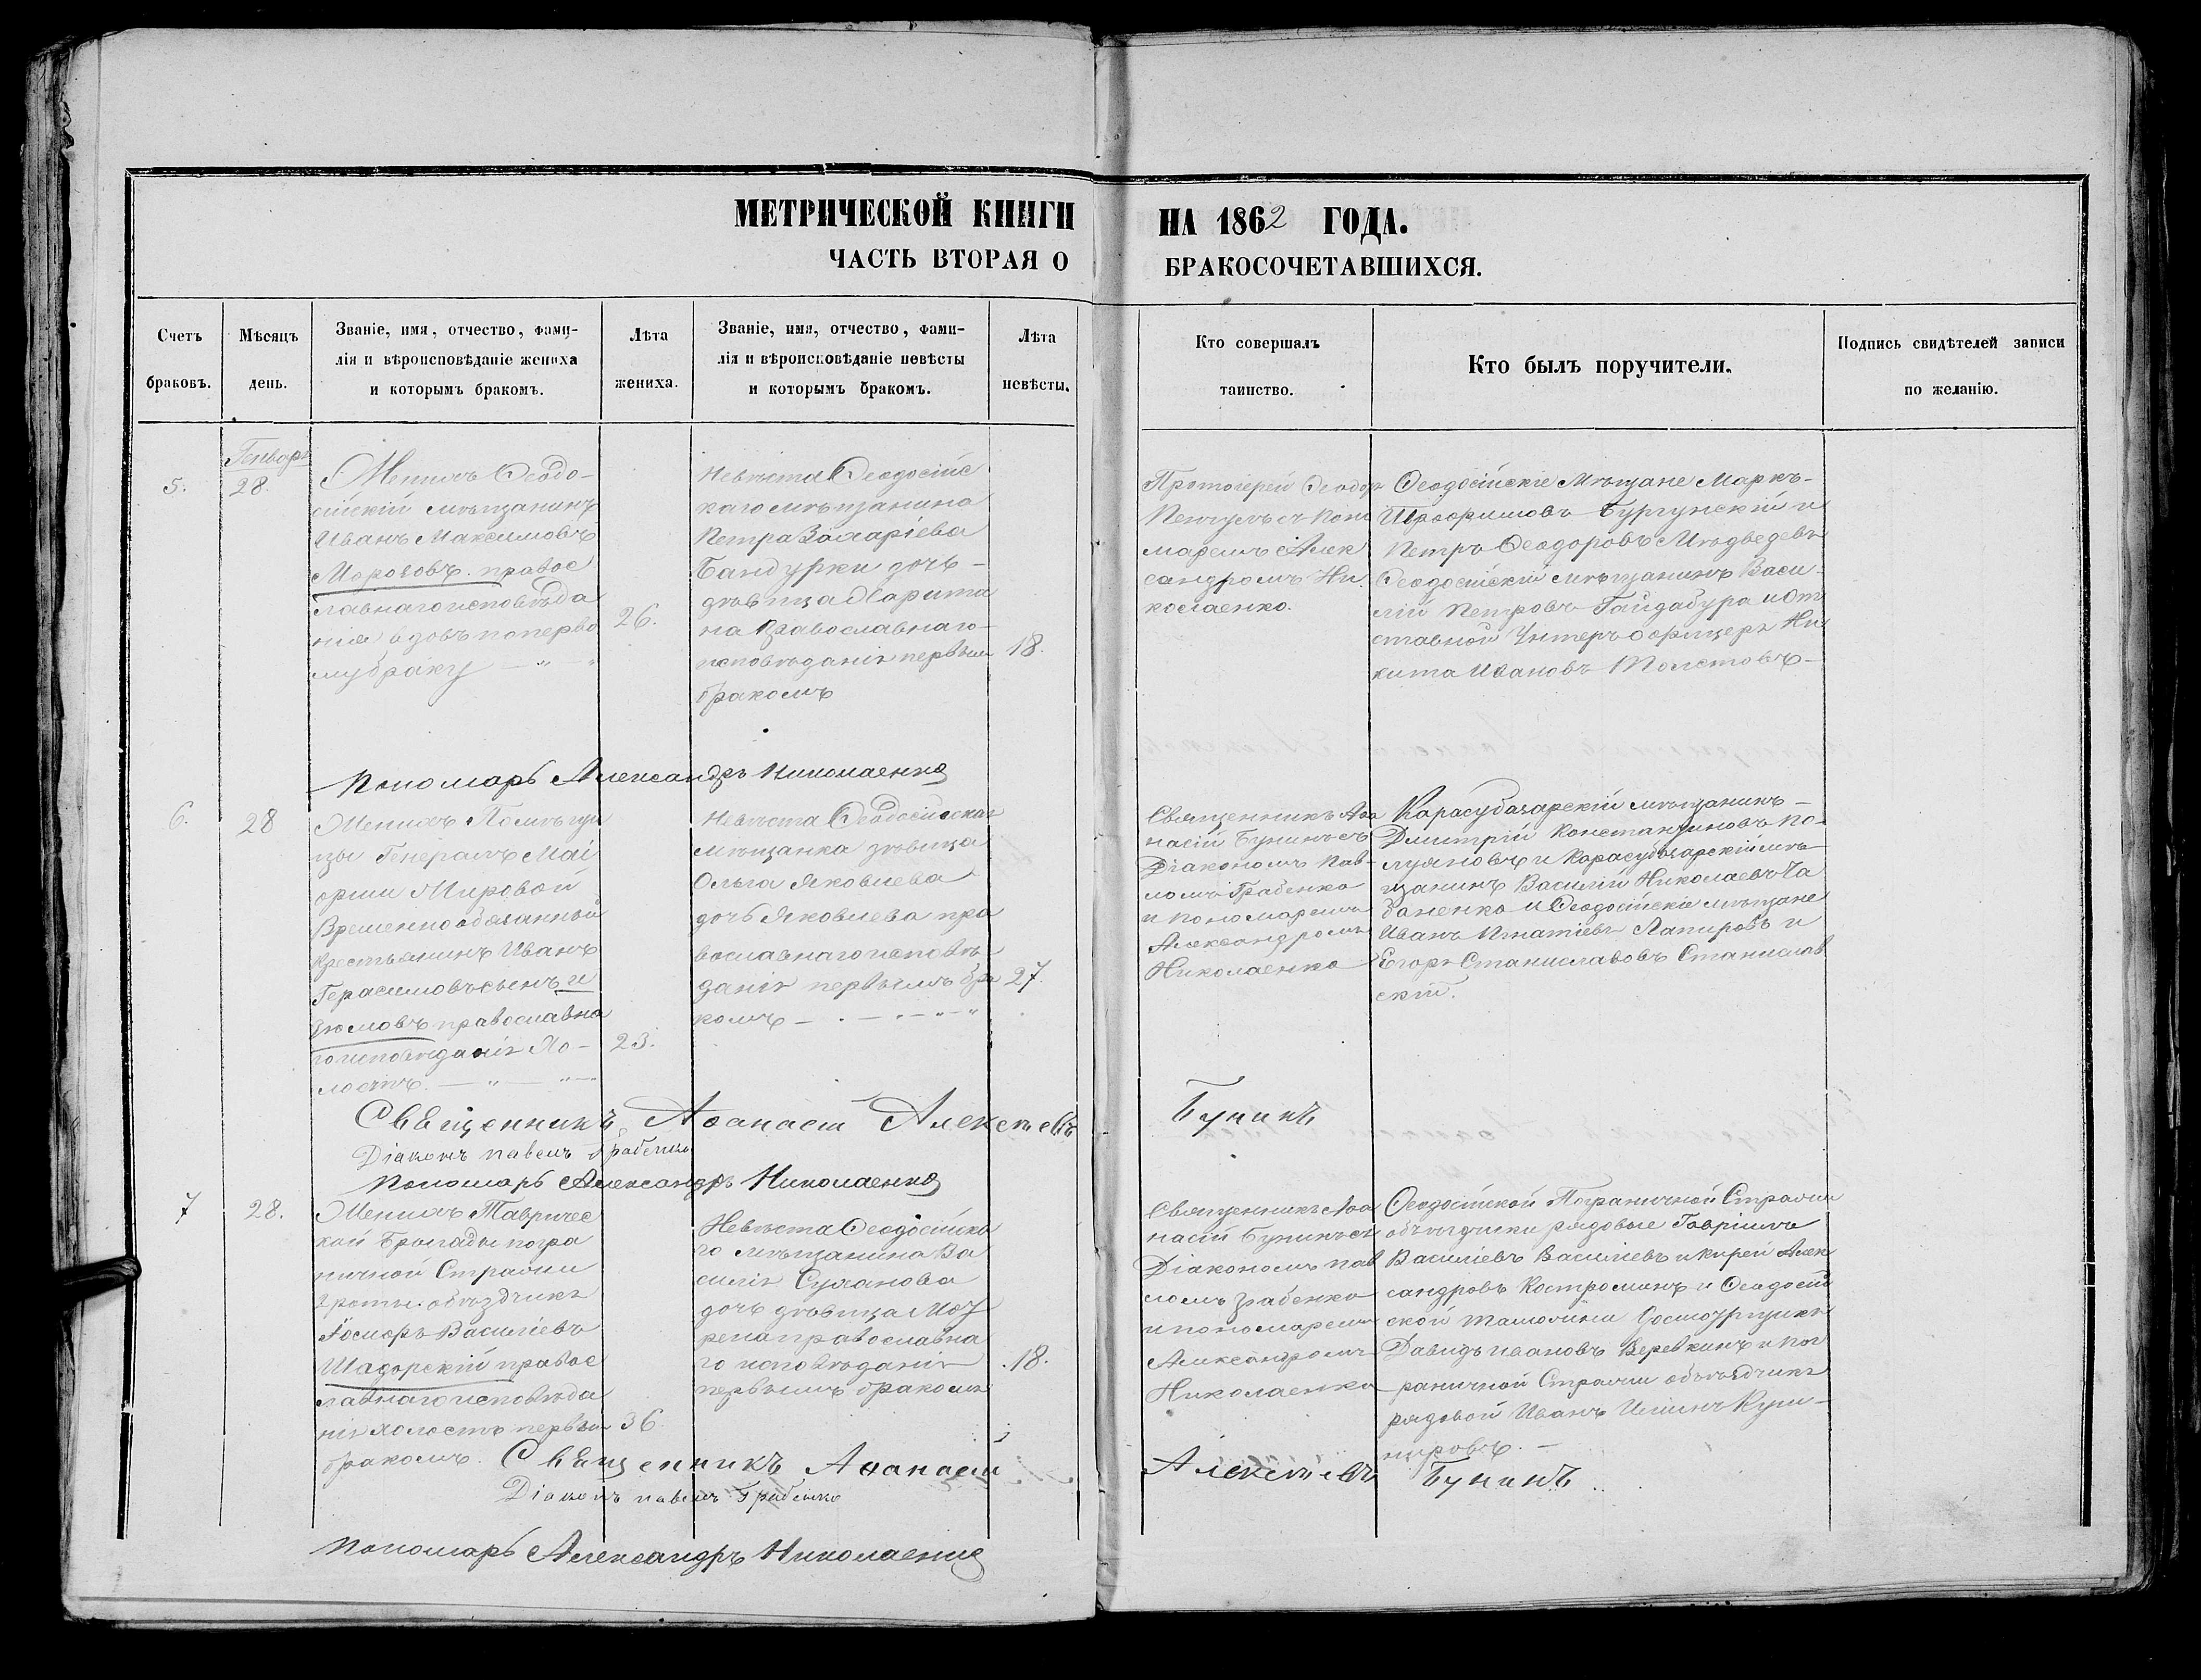 МЕТРИЧЕСКОЙ КНИГИ НА 1862 ГОДА.
ЧАСТЬ ВТОРАЯ О БРАКОСОЧЕТАВШИХСЯ.
Счетъ браковъ.
Мѣсяцъ день.
Званіе, имя, отчество, фами-
лія и вѣроисповѣданіе жениха
и которымъ бракомъ.
Лѣта
жениха.
Званіе, имя, отчество, фами-
лія и вѣроисковѣданіе невѣсты
и которымъ бракомъ.
Лѣта
невѣсты.
Кто совершалъ
таинство.
Кто былъ поручители.
Подпись свидѣтелей записи
по желанію.
5.
Генварь
28.
Женихъ Ѳеодо-
сійскій мѣщанинъ
Иванъ Максимовъ
Морозовъ. правос
лавнаго исповѣда
нія вдовъ поперво
му браку
26.
Невѣста Ѳеодосійс
каго мѣщанина
Петра Захаріева
Бандурки дочь -
дѣвица Харити
на Православнаго
исповѣданія первым
бракомъ
18.
Протоіерей Ѳеодор
съ Поно
маремъ Алек
сандромъ Ни
колаенко.
Ѳеодосійскіе мѣщане Маркъ-
Бургунскій и
Петръ Ѳеодоровъ Мѣдведевъ
Ѳеодосійскій мѣщанинъ Васи-
лій Петровъ Гайдабура и От
ставной Унтеръ офицеръ Ни
кита Ивановъ Толстовъ-
Пономарь Александръ Николаенко
6.
28
Женихъ Помѣщи
цы Генералъ Маі
орши Мировой
Временно обязанный
Крестьянинъ Иванъ
Герасимовъ сынъ И
зюмовъ православна
го исповѣданія Хо-
лостъ.
23.
Невѣста Ѳеодосійская
мѣщанка дѣвица
Ольга Яковлева
дочь Яковлева пра
вославнаго исповѣ
данія первымъ бра
комъ
27.
Священникъ Аѳа
насій Бунинъ съ
Діакономъ Пав-
ломъ Грабенко
и пономаремъ
Александромъ
Николаенко
Карасубазарскій мѣщанинъ -
Дмитрій Константиновъ По-
луяновъ и Карасубазарскій мѣ-
щанинъ Василій Николаевъ Ча
баненко и Ѳеодосійскіе мѣщане
Иванъ Игнатіевъ Лапировъ и
Егоръ Станиславовъ Станислав
скій.
Священникъ Аѳанасій Алексѣевъ Бунинъ
Діаконъ павелъ Грабенко
Пономарь Александръ Николаенко
7
28.
Женихъ Тавричес
кой Бригады погра
ничной Стражи
роты. объѣздчикъ
Василіевъ
Шадорскій правос
лавнаго исповѣда
нія холостъ первым
бракомъ.
36.
Невѣста Ѳеодосійска
го мѣщанина Ва
силія Суханова
дочь дѣвица
православна
го исповѣданія
первымъ бракомъ
18.
Священникъ Аѳа
насій Бунинъ съ
Діакономъ Пав
ломъ Грабенко
и пономаремъ
Александромъ
Николаенко
Ѳеодосійской Пограничной Стражи
объѣздчики рядовые Гавріилъ
Василіевъ Василіевъ и Кирей Алек
сандровъ Костроминъ и Ѳеодосій
ской таможни Досмотрщикъ
Давидъ Ивановъ Веревкинъ и Пог
раничной Стражи объѣздчикъ
рядовой Иванъ Ильинъ Куш-
нировъ. -
Священникъ Аѳанасій Алексѣевъ Бунинъ
Діаконъ павелъ Грабенко
Пономарь Александръ Николаенко